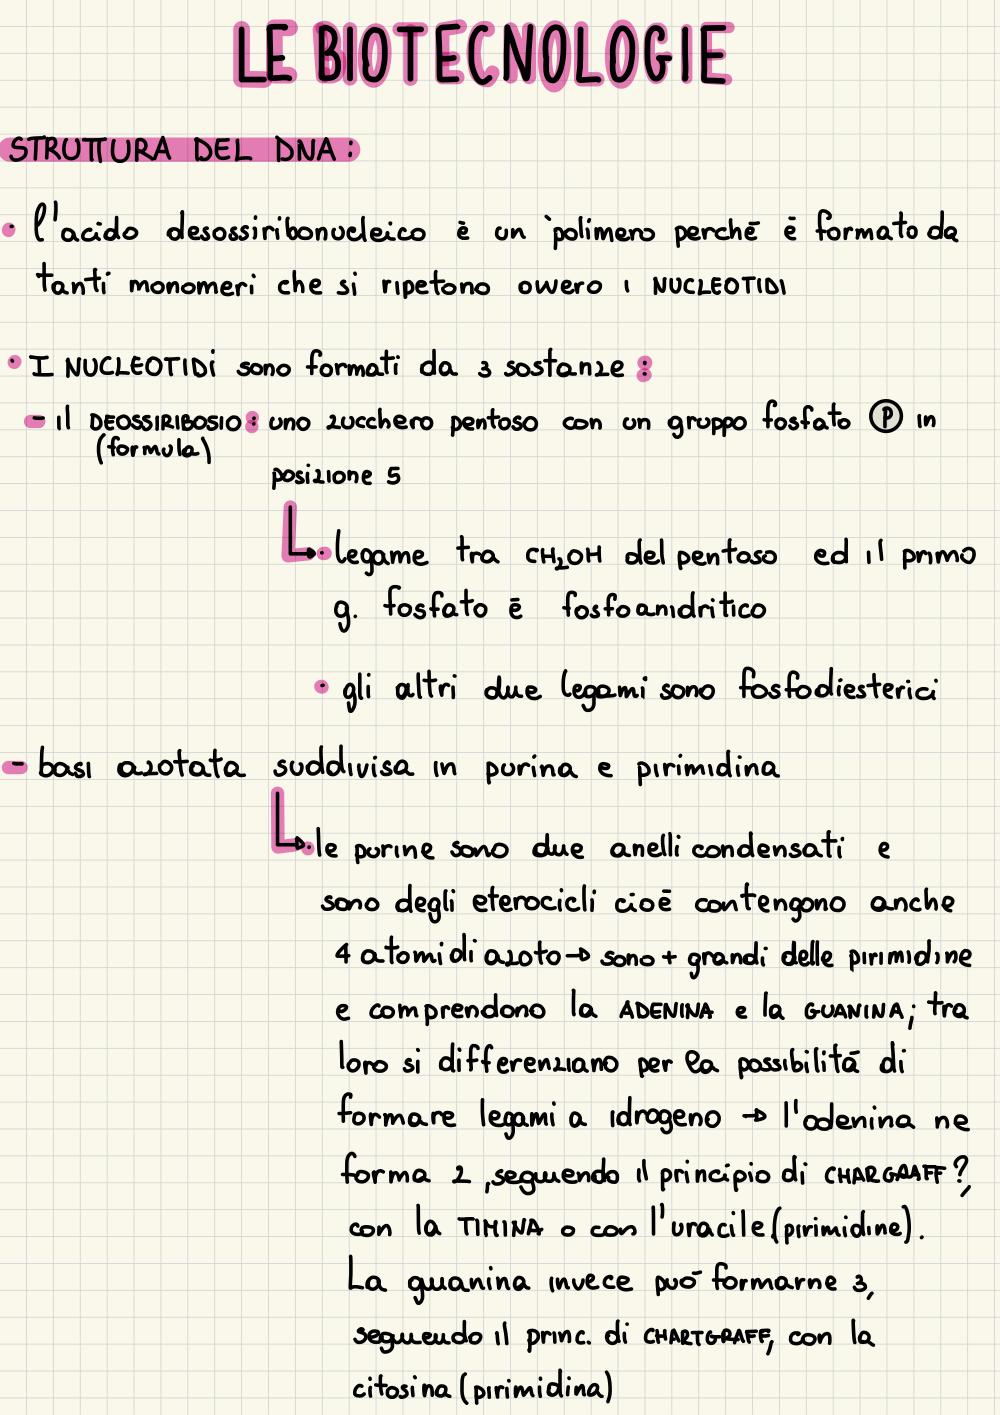 LE BIOTECNOLOGIE
STRUTTURA DEL DNA:
• l'acido desossiribonucleico è un polimero perché è formato da
tanti monomeri che si ripetono ovvero i NUCLEOTIDI
• I NUCLEOTIDI sono formati da 3 sostanze:
- il DEOSSIRIBOSIO: uno zucchero pentoso con un gruppo fosfato P in
(formula)
posizione 5
• legame tra CH₂OH del pentoso ed il primo
g. fosfato è fosfoanidritico
• gli altri due legami sono fosfodiesterici
- basi azotata suddivisa in purina e pirimidina
• le purine sono due anelli condensati e
sono degli eterocicli cioè contengono anche
4 atomi di azoto → sono + grandi delle pirimidine
e comprendono la ADENINA e la GUANINA; tra
loro si differenziano per la possibilità di
formare legami a idrogeno → l'adenina ne
forma 2, seguendo il principio di CHARGAAFF?,
con la TIMINA o con l'uracile (pirimidine).
La guanina invece può formarne 3,
seguendo il princ. di CHARTGRAFF, con la
citosina (pirimidina)